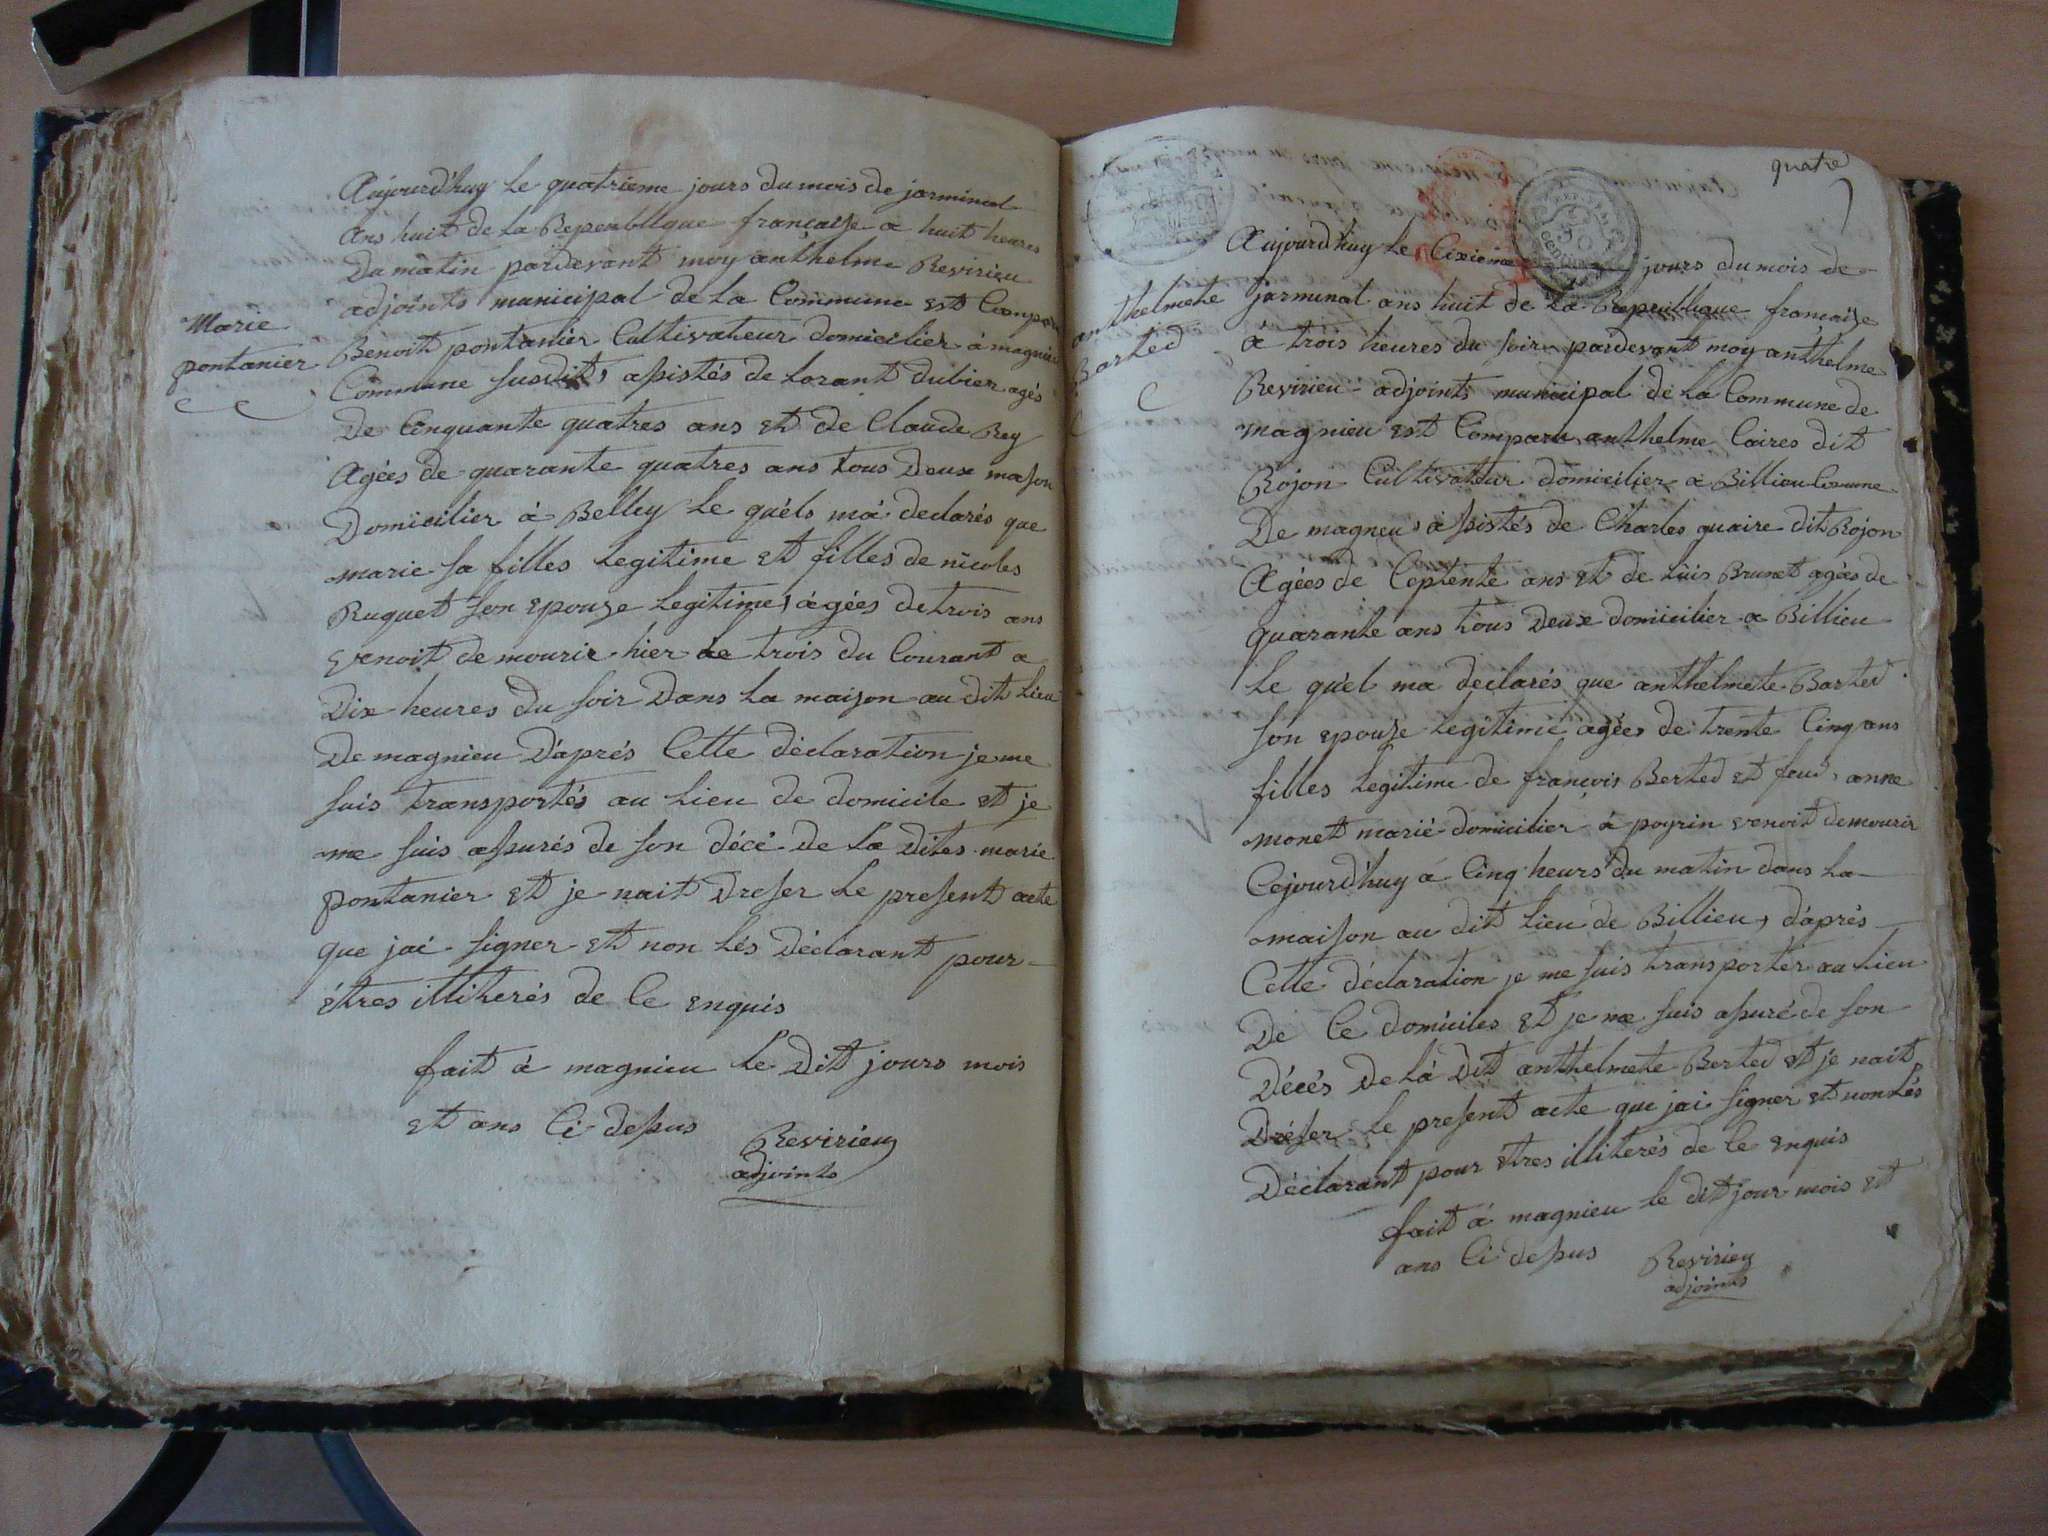 Marie
pontanier
Aujourd'huy le quatrieme jours du mois de jarminal
ans huit de la Repeubllque françaíse a huit heures
Du matin pardevant moy anthelme Revirieu
adjoints municipal de la Commune est Comparu
Benoit pontanier Cultivateur domicilier à magnieu
Commune susdit, asistés de Lorant dubier agés
De Cinquante quatres ans et de Claude Rey
Agées de quarante quatres ans tous Deux mason
Domicilier à Belley le quéls m'a declarés que
marie sa filles legitime et filles de nicoles
Ruquet son epouze legitime, agées de trois ans
venoit de mourir hier le trois du Courant a
Dix heures du soir Dans la maison au dit lieu
De magnieu D'aprés Cette déclaration je me
suis transportés au lieu de domicile et je
me suis assurés de son décé De la Dites marie
pontanier et je nait Dreser le present acte
que jai signer et non lés Déclarant pour
étres illiterés de ce enquis
fait à magnieu le Dit jours mois
et ans Ci desus
Revirieu
adjoints
quatre
anthelmete
Barted
Aujourd'huy le Cixieme jours du mois de
jarminal ans huit de la Republique francaize
à trois heures du soir pardevant moy anthelme
Revirieu adjoints municipal de la Commune de
magnieu est Comparu anthelme Caires dit
Rojon Cultivateur domicilier a Billieu Comune
De magneu, asistés de Charles quaire dit Rojon
Agées de Ceptente ans et de Luis Brunet agées de
quarante ans tous Deux domicilier a Billieu
le quel ma déclarés que anthelmete Barted
son epouze legitime agées de trente Cinq ans
filles legitime de françois Berted et feud anne
monet marié domicilier à poyrin venoit de mourir
Cejourd'huy à Cinq heurs du matin dans la
maison au dit lieu de Billieu, d'aprés
Cette déclaration je me suis transporter au lieu
De Ce domiciles et je me suis asuré de son
Décés De la Dit anthelmete Berted et je nait
Dréser le present acte que jai signer et non lés
Déclarant pour etres illiterés de ce enquis
fait à magnieu le dit jour mois et
ans Ci desus
Revirieu
adjoints